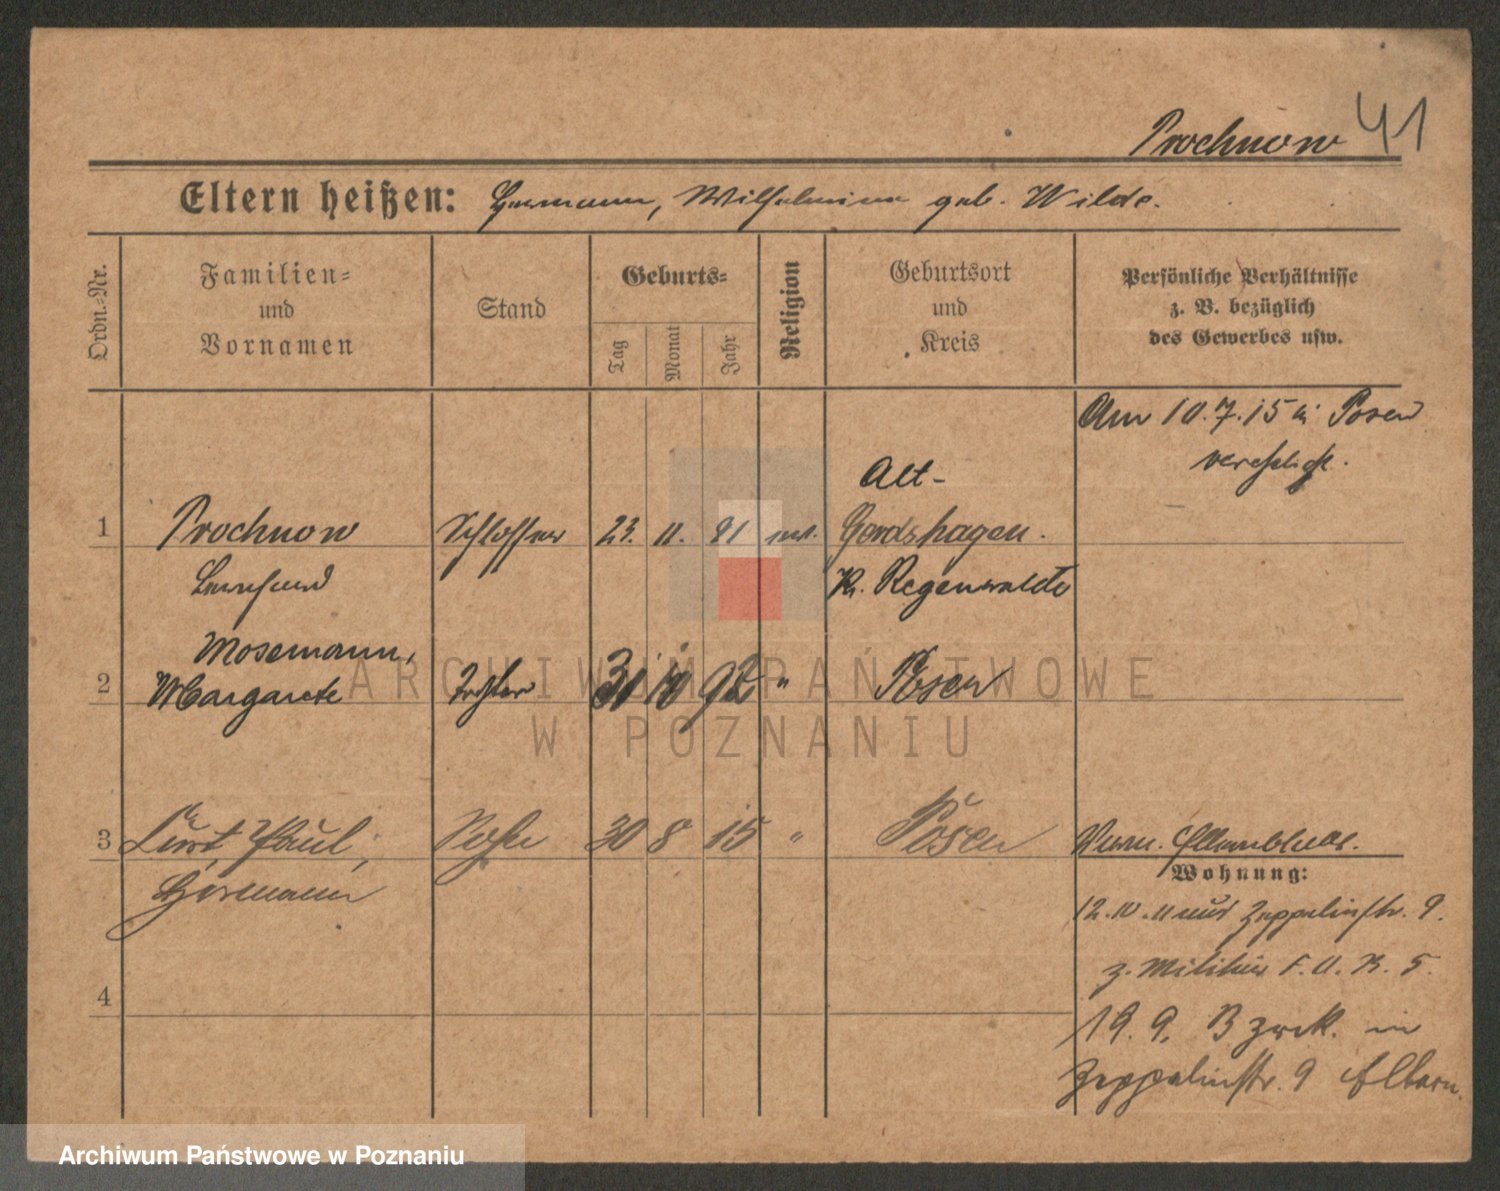 41
Prochnow
Eltern heißen: Hermann, Wilhelmine geb. Wilde.
Ordn.-Nr.
Familien-
und
Vornamen
Stand
Geburts-
Tag
Monat
Jahr
Religion
Geburtsort
und
Kreis
Persönliche Verhältnisse
z. B. bezüglich
des Gewerbes usw.
Am 10.7.15 in Posen
verehelicht.
Alt-
1 Prochnow Schlosser 23. 11. 91 Gerdshagen.
Kr. Regenwalde
Mosemann,
2 Margarete Tochter 31 10 92 " Posen
3 Curt, Paul, Sohn 30 8 15 " Posen
Hermann
Wohnung:
12.10. Zeppelinstr. 9.
z. Militär F. A. R. 5.
4
19. 9. zrck. in
Zeppelinstr. 9 Eltern.
ARCHIWUM PAŃSTWOWE
W POZNANIU
Archiwum Państwowe w Poznaniu